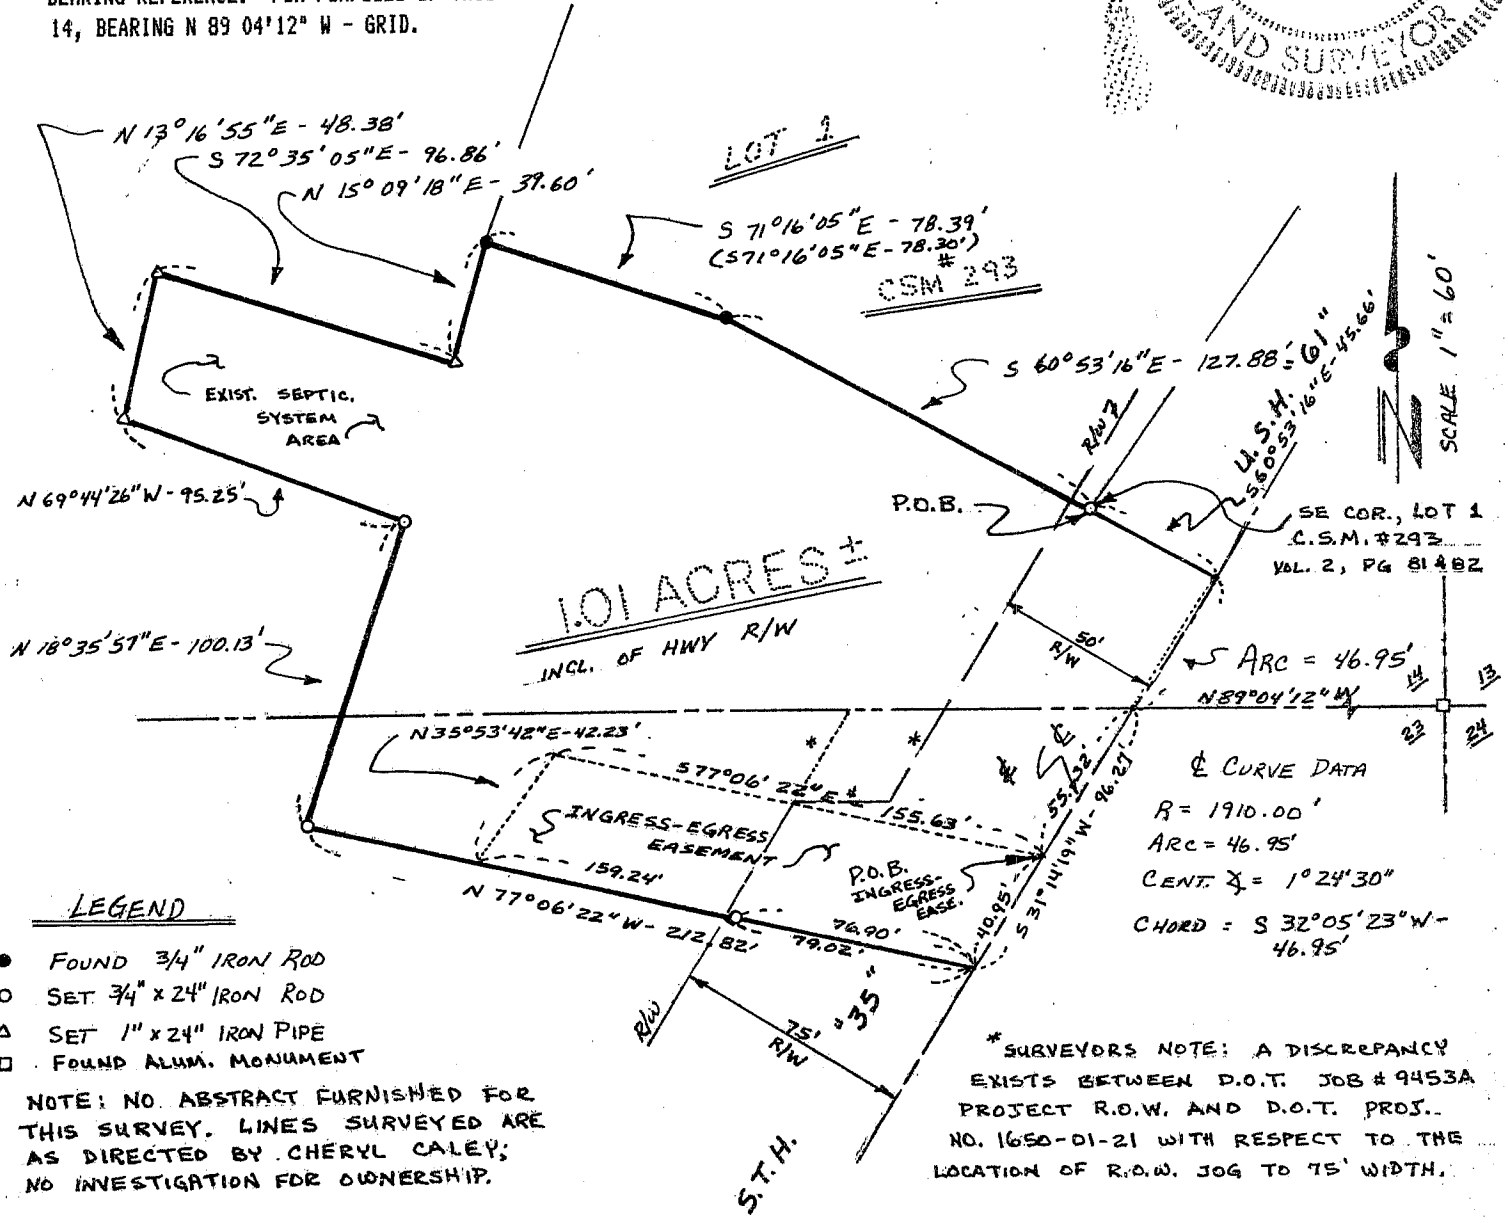 14, BEARING N 89 04'12" W - GRID.
LAND SURVEYOR
N 13°16'55"E - 48.38'
S 72°35'05"E - 96.86'
N 15°09'18"E - 39.60'
LOT 1
S 71°16'05"E - 78.39'
(S71°16'05"E - 78.30')
CSM # 293
S 60°53'16"E - 127.88'
U.S.H. "61"
S60°53'16"E - 45.66'
SCALE 1" = 60'
N
R/W
EXIST. SEPTIC.
SYSTEM
AREA
N 69°44'26"W - 95.25'
P.O.B.
SE COR., LOT 1
C.S.M. #293
VOL. 2, PG 81&82
1.01 ACRES ±
INCL. OF HWY R/W
N 18°35'57"E - 100.13'
50'
R/W
ARC = 46.95'
N89°04'12"W
14
13
23
24
N35°53'42"E - 42.23'
*
*
S77°06'22"E *
155.63'
INGRESS-EGRESS
EASEMENT
159.24'
N 77°06'22"W - 212.82'
P.O.B.
INGRESS-
EGRESS
EASE.
76.90'
79.02'
55.32'
40.95'
S 31°14'19"W - 96.27'
℄
℄ CURVE DATA
R = 1910.00'
ARC = 46.95'
CENT. ∡ = 1°24'30"
CHORD = S 32°05'23"W -
46.95'
R/W
75'
R/W
S.T.H. "35"
LEGEND
● FOUND 3/4" IRON ROD
○ SET 3/4" x 24" IRON ROD
△ SET 1" x 24" IRON PIPE
□ FOUND ALUM. MONUMENT
NOTE: NO ABSTRACT FURNISHED FOR
THIS SURVEY. LINES SURVEYED ARE
AS DIRECTED BY CHERYL CALEY;
NO INVESTIGATION FOR OWNERSHIP.
*SURVEYORS NOTE: A DISCREPANCY
EXISTS BETWEEN D.O.T. JOB # 9453A
PROJECT R.O.W. AND D.O.T. PROJ.
NO. 1650-01-21 WITH RESPECT TO THE
LOCATION OF R.O.W. JOG TO 75' WIDTH.